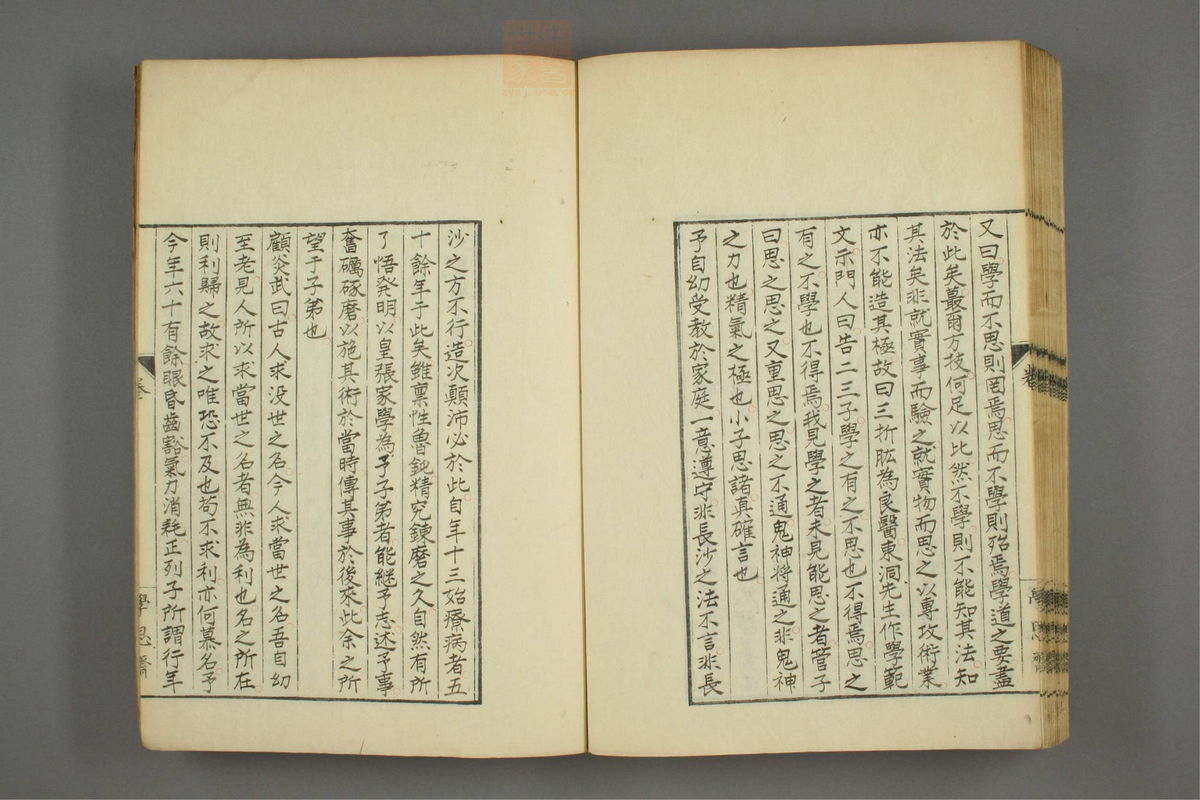 又曰學而不思則罔焉思而不學則殆焉學道之要盡
於此矣蕞爾方技何足以比然不學則不能知其法知
其法矣非就實事而驗之就實物而思之以專攻術業
亦不能造其極故曰三折肱為良醫東洞先生作學範
文示門人曰告二三子學之有之不思也不得焉思之
有之不學也不得焉我見學之者未見能思之者管子
曰思之思之又重思之思之不通鬼神将通之非鬼神
之力也精氣之極也小子思諸真確言也
予自幼受教於家庭一意遵守非長沙之法不言非長
沙之方不行造次顛沛必於此自年十三始療病者五
十餘年于此矣雖禀性魯鈍精究鍊磨之久自然有所
了悟発明以皇張家學為予子弟者能継予志述予事
奮礪琢磨以施其術於當時傳其事於後來此余之所
望于子弟也
顧炎武曰古人求没世之名今人求當世之名吾自幼
至老見人所以求當世之名者無非為利也名之所在
則利歸之故求之唯恐不及也苟不求利亦何慕名予
今年六十有餘眼昏齒豁氣力消耗正列子所謂行年
學思齋